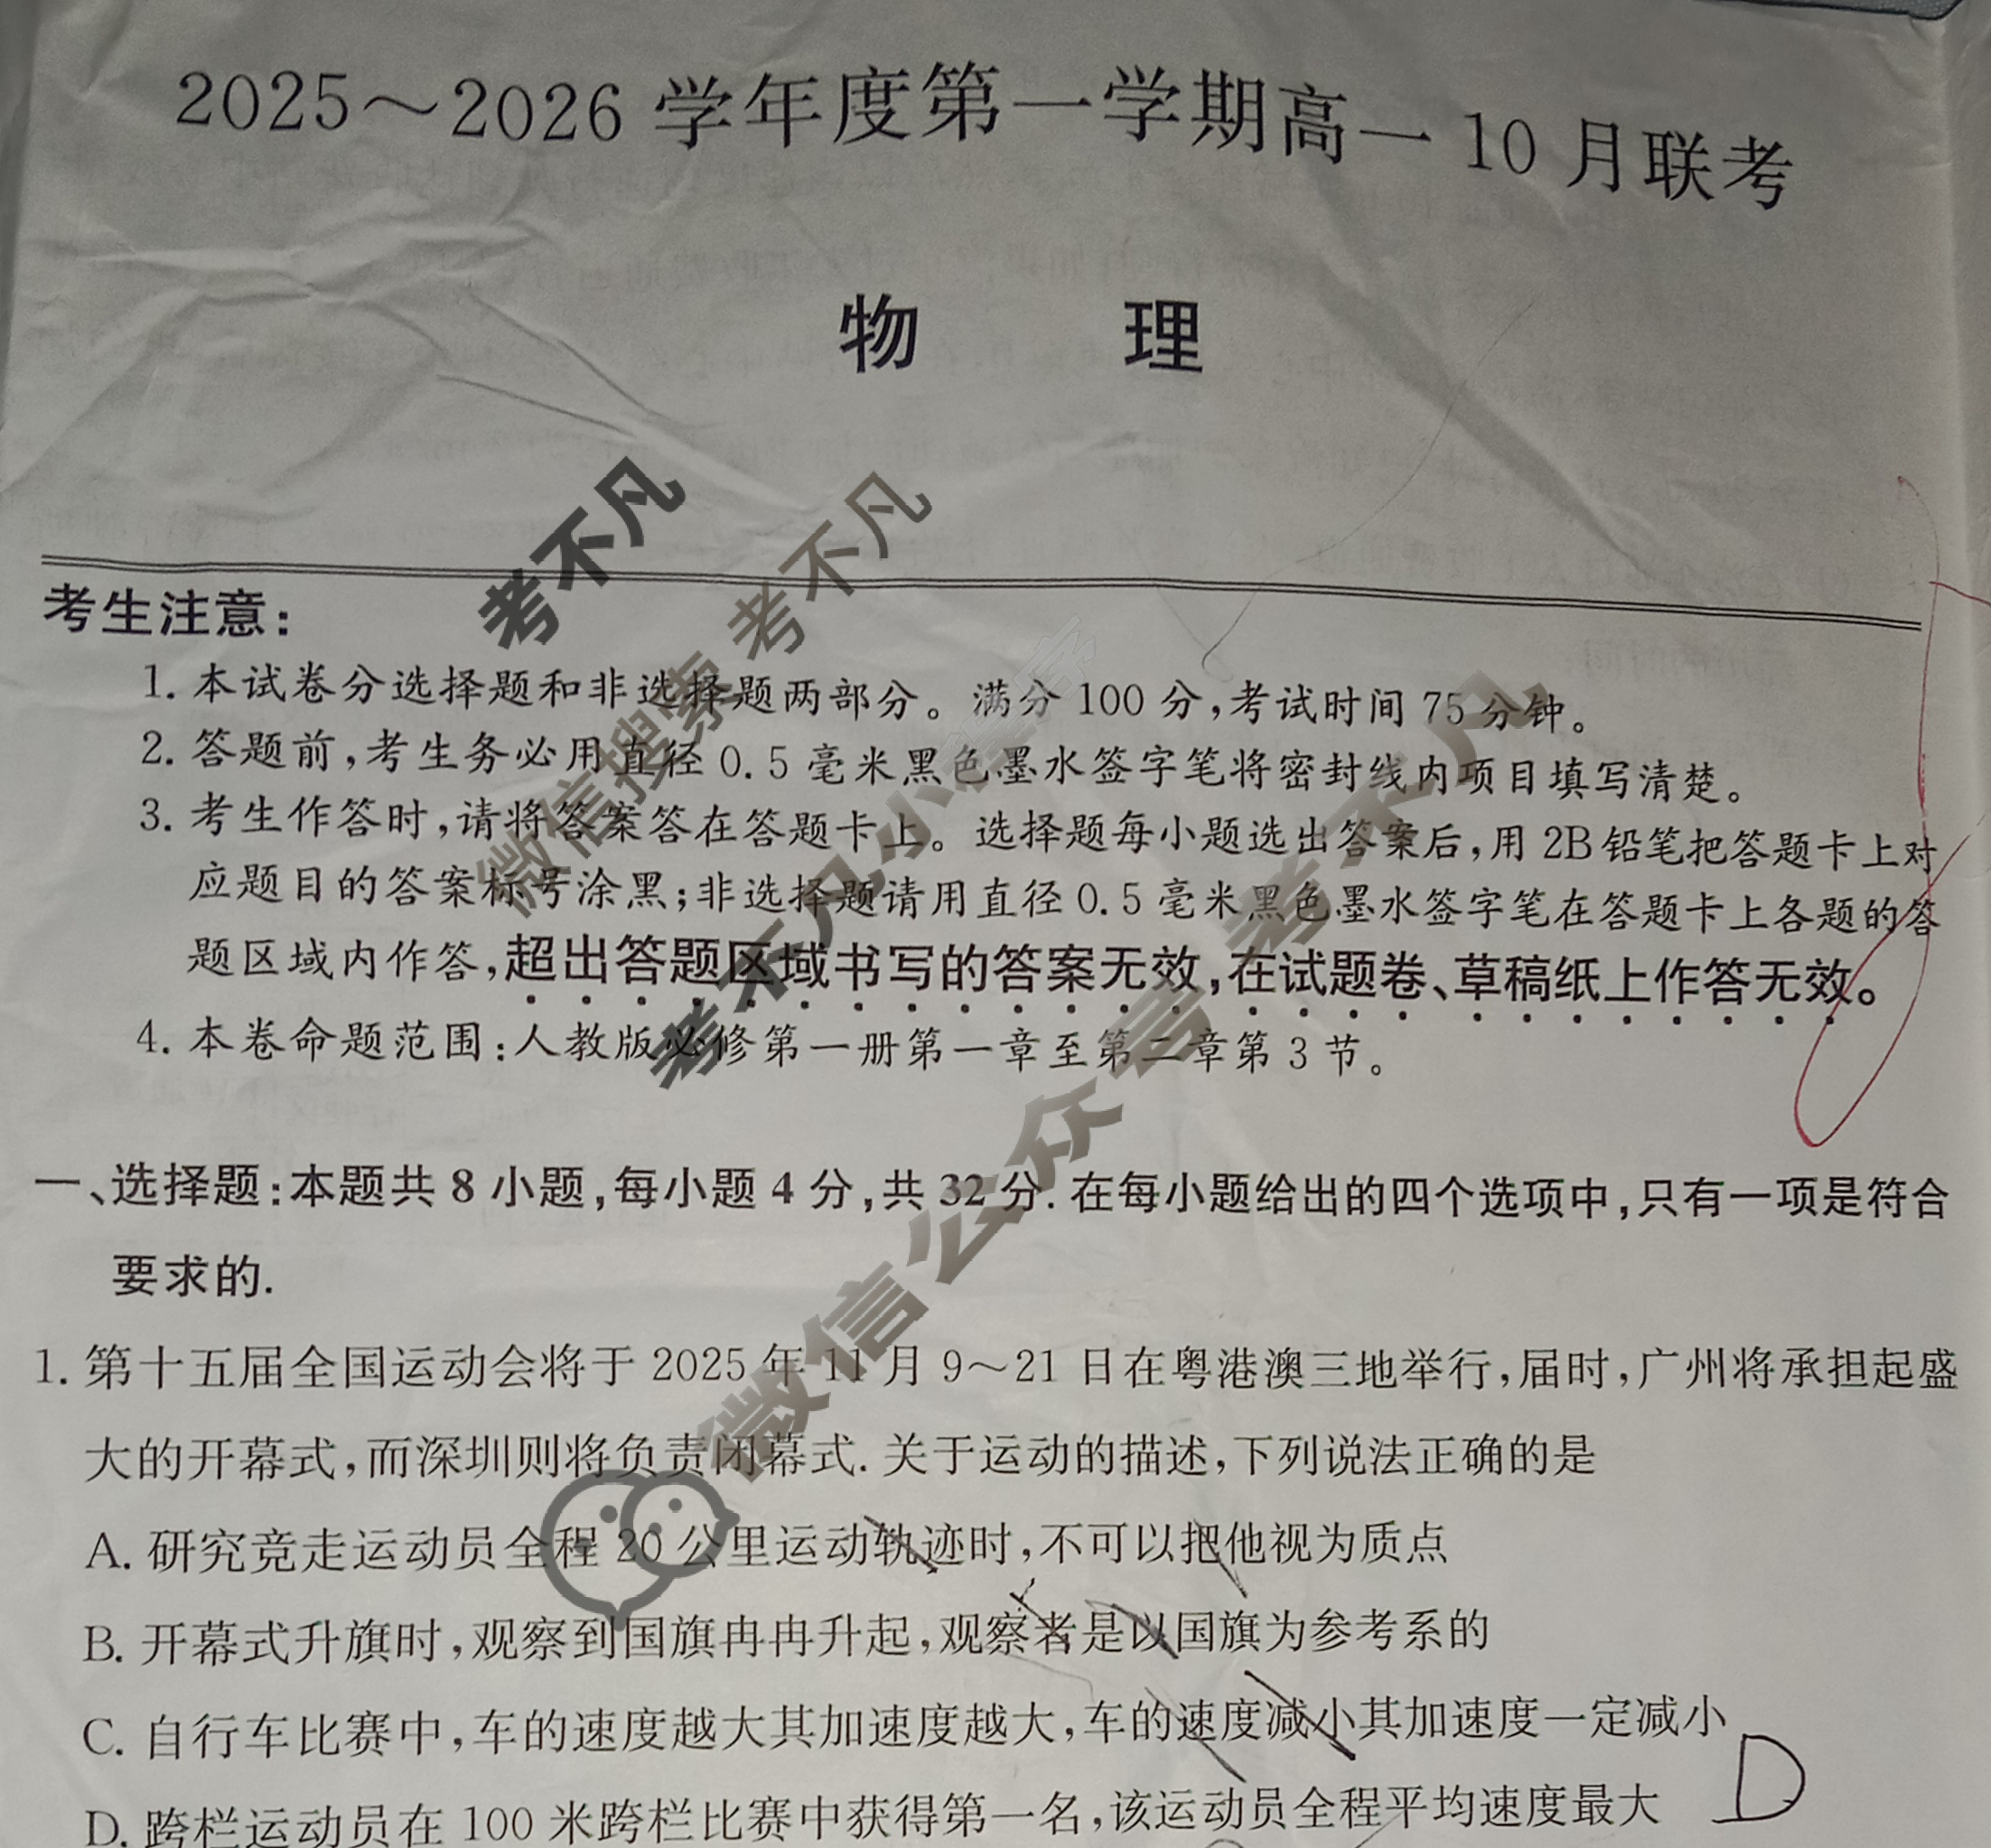 2025～2026学年度第一学期高一10月联考
物 理
考生注意：
1. 本试卷分选择题和非选择题两部分。满分100分，考试时间75分钟。
2. 答题前，考生务必用直径0.5毫米黑色墨水签字笔将密封线内项目填写清楚。
3. 考生作答时，请将答案答在答题卡上。选择题每小题选出答案后，用2B铅笔把答题卡上对
应题目的答案标号涂黑；非选择题请用直径0.5毫米黑色墨水签字笔在答题卡上各题的答
题区域内作答，超出答题区域书写的答案无效，在试题卷、草稿纸上作答无效。
4. 本卷命题范围：人教版必修第一册第一章至第二章第3节。
一、选择题：本题共8小题，每小题4分，共32分. 在每小题给出的四个选项中，只有一项是符合
要求的.
1. 第十五届全国运动会将于2025年11月9～21日在粤港澳三地举行，届时，广州将承担起盛
大的开幕式，而深圳则将负责闭幕式. 关于运动的描述，下列说法正确的是
A. 研究竞走运动员全程20公里运动轨迹时，不可以把他视为质点
B. 开幕式升旗时，观察到国旗冉冉升起，观察者是以国旗为参考系的
C. 自行车比赛中，车的速度越大其加速度越大，车的速度减小其加速度一定减小
D
D. 跨栏运动员在100米跨栏比赛中获得第一名，该运动员全程平均速度最大
考不凡
微信搜索 考不凡
考不凡小程序
微信公众号 考不凡